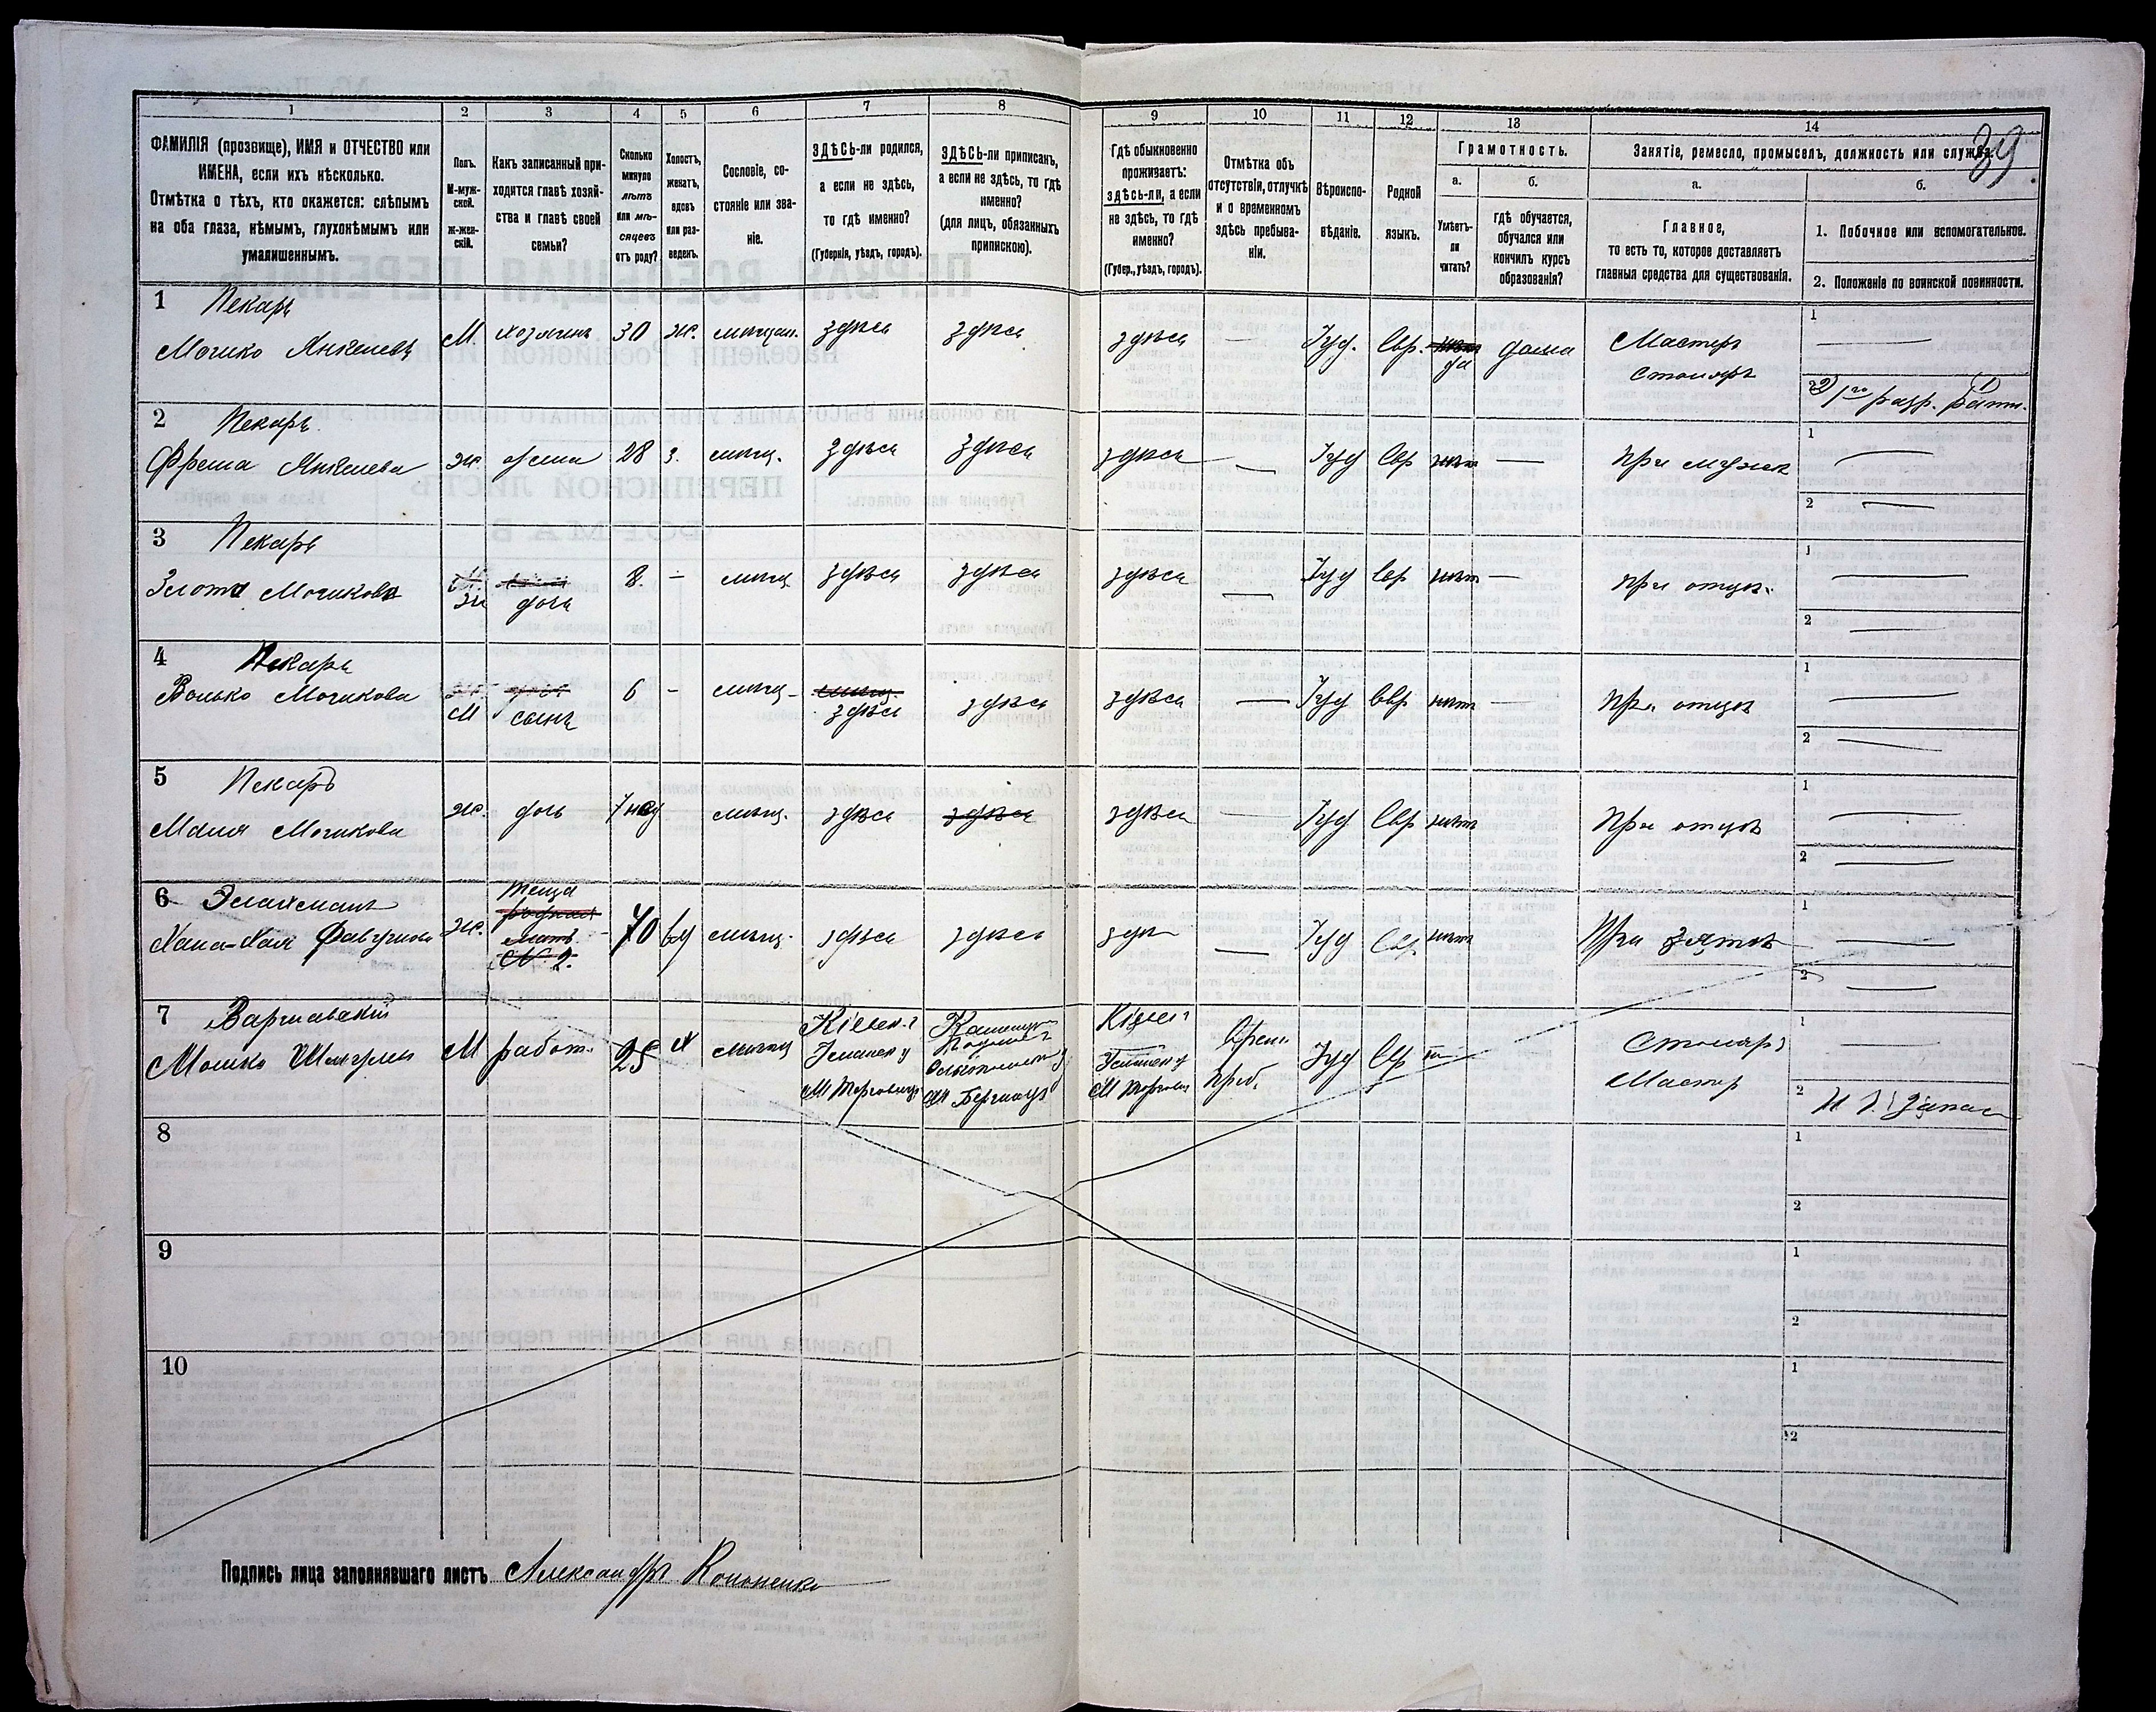 39
1 2 3 4 5 6 7 8 9 10 11 12 13 14
ФАМИЛІЯ (прозвище), ИМЯ и ОТЧЕСТВО или
ИМЕНА, если ихъ нѣсколько.
Отмѣтка о тѣхъ, кто окажется: слѣпымъ
на оба глаза, нѣмымъ, глухонѣмымъ или
умалишеннымъ.
Полъ.
М-муж-
ской.
ж-жен-
скій.
Какъ записанный при-
ходится главѣ хозяй-
ства и главѣ своей
семьи?
Сколько
минуло
лѣтъ
или мѣ-
сяцевъ
отъ роду?
Холостъ,
женатъ,
вдовъ
или раз-
веденъ.
Сословіе, со-
стояніе или зва-
ніе.
ЗДѢСЬ-ли родился,
а если не здѣсь,
то гдѣ именно?
(Губернія, уѣздъ, городъ).
ЗДѢСЬ-ли приписанъ,
а если не здѣсь, то гдѣ
именно?
(для лицъ, обязанныхъ
припискою).
Гдѣ обыкновенно
проживаетъ:
здѣсь-ли, а если
не здѣсь, то гдѣ
именно?
(Губер., уѣздъ, городъ).
Отмѣтка объ
отсутствіи, отлучкѣ
и о временномъ
здѣсь пребыва-
ніи.
Вѣроиспо-
вѣданіе.
Родной
языкъ.
Грамотность.
а.
Умѣетъ-
ли
читать?
б.
гдѣ обучается,
обучался или
кончилъ курсъ
образованія?
Занятіе, ремесло, промыселъ, должность или служба.
а.
Главное,
то есть то, которое доставляетъ
главныя средства для существованія.
б.
1. Побочное или вспомогательное.
2. Положеніе по воинской повинности.
1 Пекарь
Мошко Янкелевъ М. хозяинъ 30 ж. мѣщан. здѣсь здѣсь здѣсь — Іуд. Евр. нѣтъ да дома Мастеръ столяръ
1 —
2 1го разр. ратн.
2 Пекарь
Фрейма Янкелева ж. жена 28 з. мѣщ. здѣсь здѣсь здѣсь — Іуд Евр нѣтъ — при мужѣ
1 —
2 —
3 Пекарь
Злота Мошкова М. ж дочь 8. - мѣщ здѣсь здѣсь здѣсь — Іуд Евр нѣтъ — при отцѣ.
1 —
2 —
4 Пекарь
Волько Мошкова М сынъ 6 - мѣщ- мѣщ. здѣсь здѣсь здѣсь — Іуд Евр нѣтъ — при отцѣ
1 —
2 —
5 Пекарь
Маля Мошкова ж. дочь 7 нед мѣщ. здѣсь здѣсь здѣсь — Іуд Евр нѣтъ при отцѣ
1 —
2 —
6
Хана-Хая ж. теща мать № 2. 70 вд мѣщ. здѣсь здѣсь здѣ — Іуд Евр. нѣтъ При зятѣ
1 —
2 —
7 Варшавскій
Мошко Шмулев М работ. 25 х мѣщ
Кіевск. г Уманск у М Торговица
Каменец Подольск г Ольгопольск у М Бершадь
Кіевс г Уманск у М Торговица
Врем преб.
Іуд Евр Столяръ Мастер
1 —
2 Запас
8
1
2
9
1
2
10
1
2
Подпись лица заполнявшаго листъ Александръ Кононенко